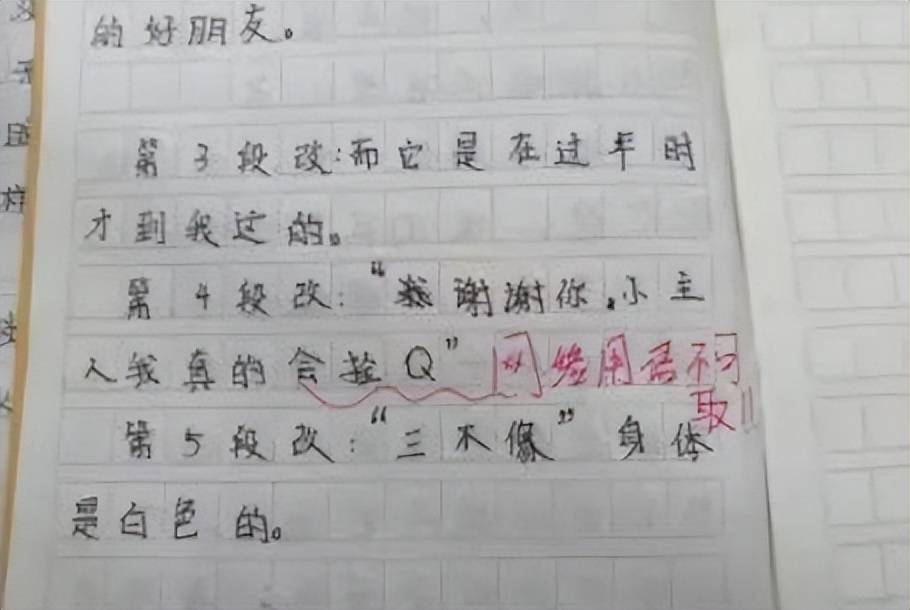 的好朋友。
第3段改:而它是在过年时
才到我这的。
第4段改:“谢谢你,小主
人我真的会拴Q”网络用语不可
取!!
第5段改:“三不像”身体
是白色的。